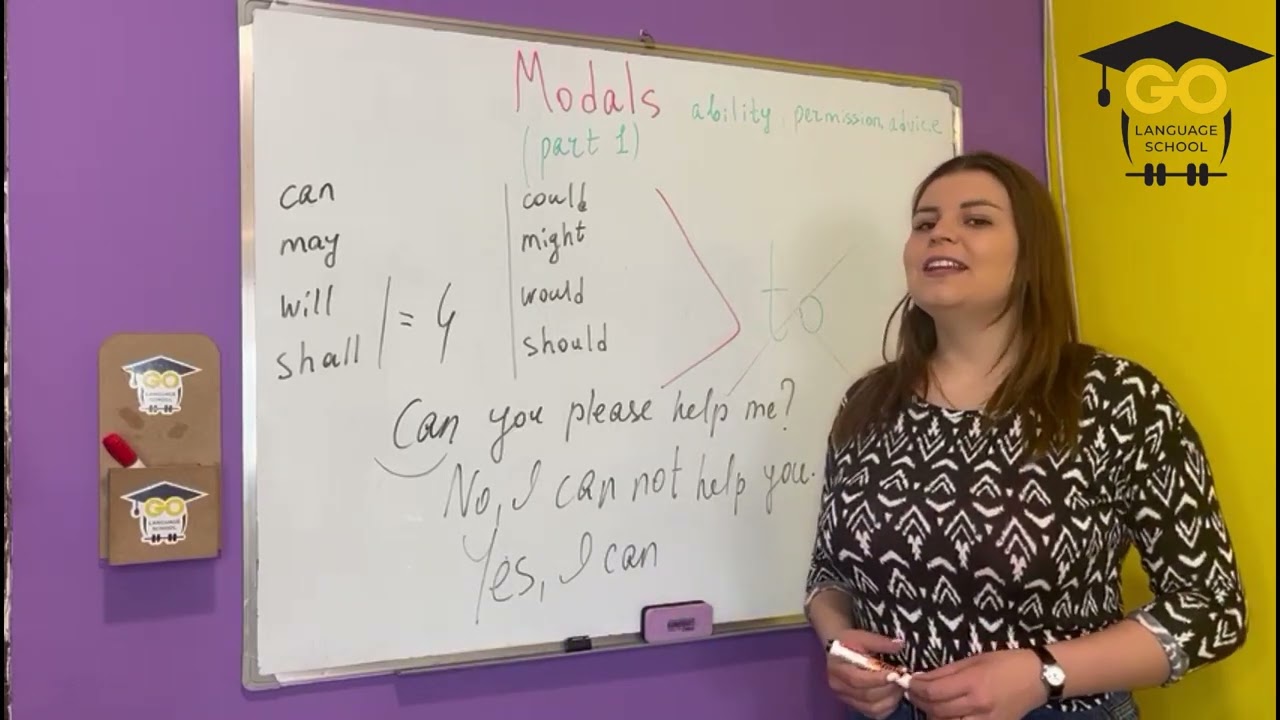 Modals
ability, permission, advice
(part 1)
can
could
may
might
will
would
shall
should
= 4
to
Can you please help me?
No, I can not help you.
Yes, I can
GO
LANGUAGE
SCHOOL
GO
LANGUAGE
SCHOOL
GO
LANGUAGE
SCHOOL